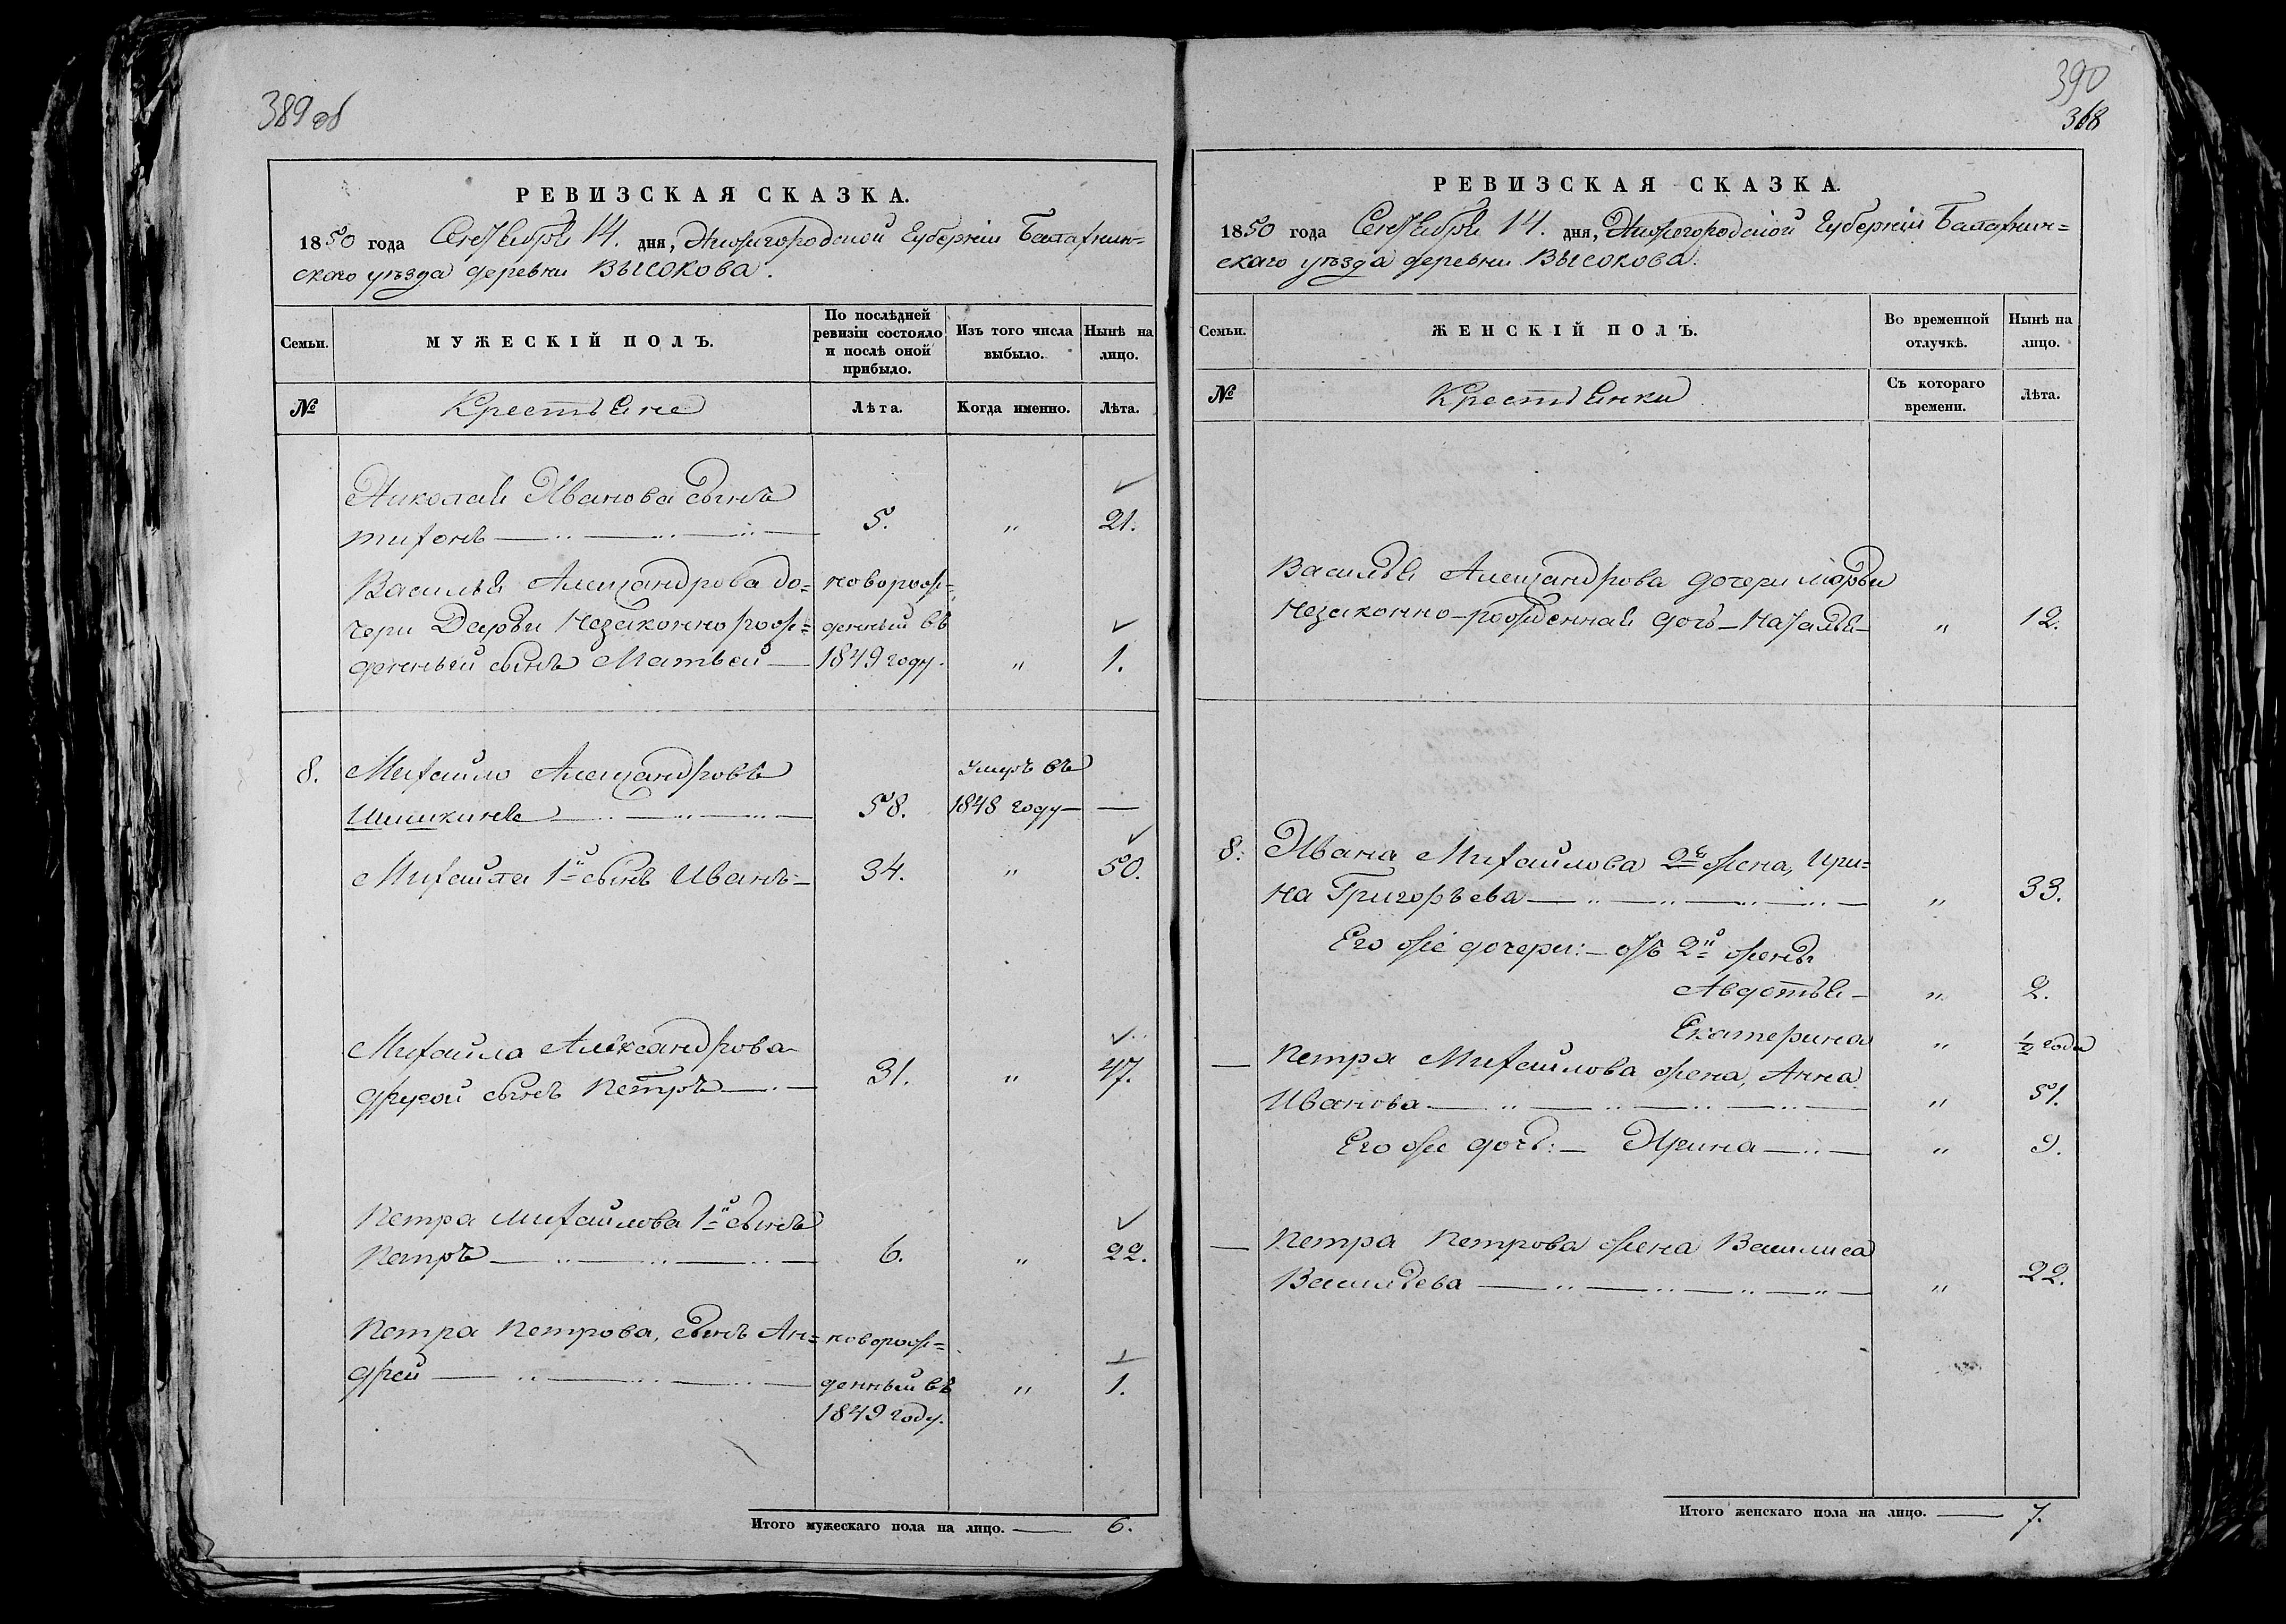 389 об
РЕВИЗСКАЯ СКАЗКА.
1850 года Сентября 14. дня, Нижегородской Губернии Балахнин=
скаго уѣзда деревни Высокова.
Семьи.
МУЖЕСКІЙ ПОЛЪ.
По послѣдней ревизіи состояло и послѣ оной прибыло.
Изъ того числа выбыло.
Нынѣ на лицо.
№
Крестьяне
Лѣта.
Когда именно.
Лѣта.
Николай Иванова сынъ
Тихонъ 5. " 21.
Василья Александрова до= новорож=
чери Дарьи незаконнорож= денный въ
денный сынъ Матвей 1849 году. " 1.
8. Михайло Александровъ умръ въ
Шишкинъ 58. 1848 году —
Михайла 1й сынъ Иванъ 34. " 50.
Михайла Александрова
другой сынъ Петръ 31. " 47.
Петра Михайлова 1й сынъ
Петръ 6. " 22.
Петра Петрова, сынъ Ан= новорож=
дрей денный въ " 1.
1849 году.
Итого мужескаго пола на лицо. — 6.
390
368
РЕВИЗСКАЯ СКАЗКА.
1850 года Сентября 14. дня, Нижегородской Губерніи Балахнин=
скаго уѣзда деревни Высокова.
Семьи.
ЖЕНСКІЙ ПОЛЪ.
Во временной отлучкѣ.
Нынѣ на лицо.
№
Крестьянки
Съ котораго времени.
Лѣта.
Василья Александрова дочери Марьи
незаконно-рожденная дочь — Наталья — " 12.
8. Ивана Михайлова 2я жена, Ири=
на Григорьева " 33.
Его же дочери: — отъ 2й жены
Авдотья — " 2.
Екатерина " ½ года
— Петра Михайлова жена, Анна
Иванова " 51.
Его же дочь: — Ирина " 9.
— Петра Петрова жена Василиса
Васильева " 22.
Итого женскаго пола на лицо. — 7.